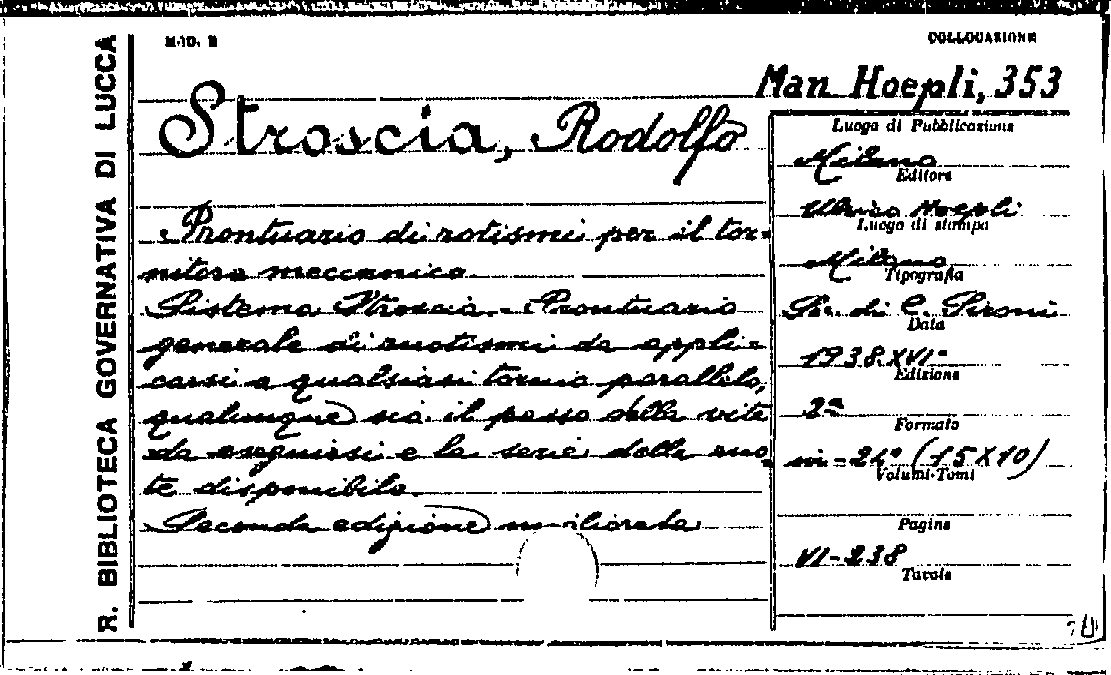 R. BIBLIOTECA GOVERNATIVA DI LUCCA
MOD. B
COLLOCAZIONE
Man Hoepli, 353
Stroscia, Rodolfo
Prontuario di rotismi per il tor-
nitore meccanico
Sistema Stroscia - Prontuario
generale di ruotismi da appli-
carsi a qualsiasi tornio parallelo,
qualunque sia il passo della vite
da eseguirsi e la serie delle ruo-
te disponibile.
Seconda edizione migliorata
Luogo di Pubblicazione
Milano
Editore
Ulrico Hoepli
Luogo di stampa
Milano
Tipografia
di C. Sironi
Data
1938-XVI-
Edizione
2ª
Formato
in-24° (15X10)
Volumi-Tomi
Pagine
VI-238
Tavole